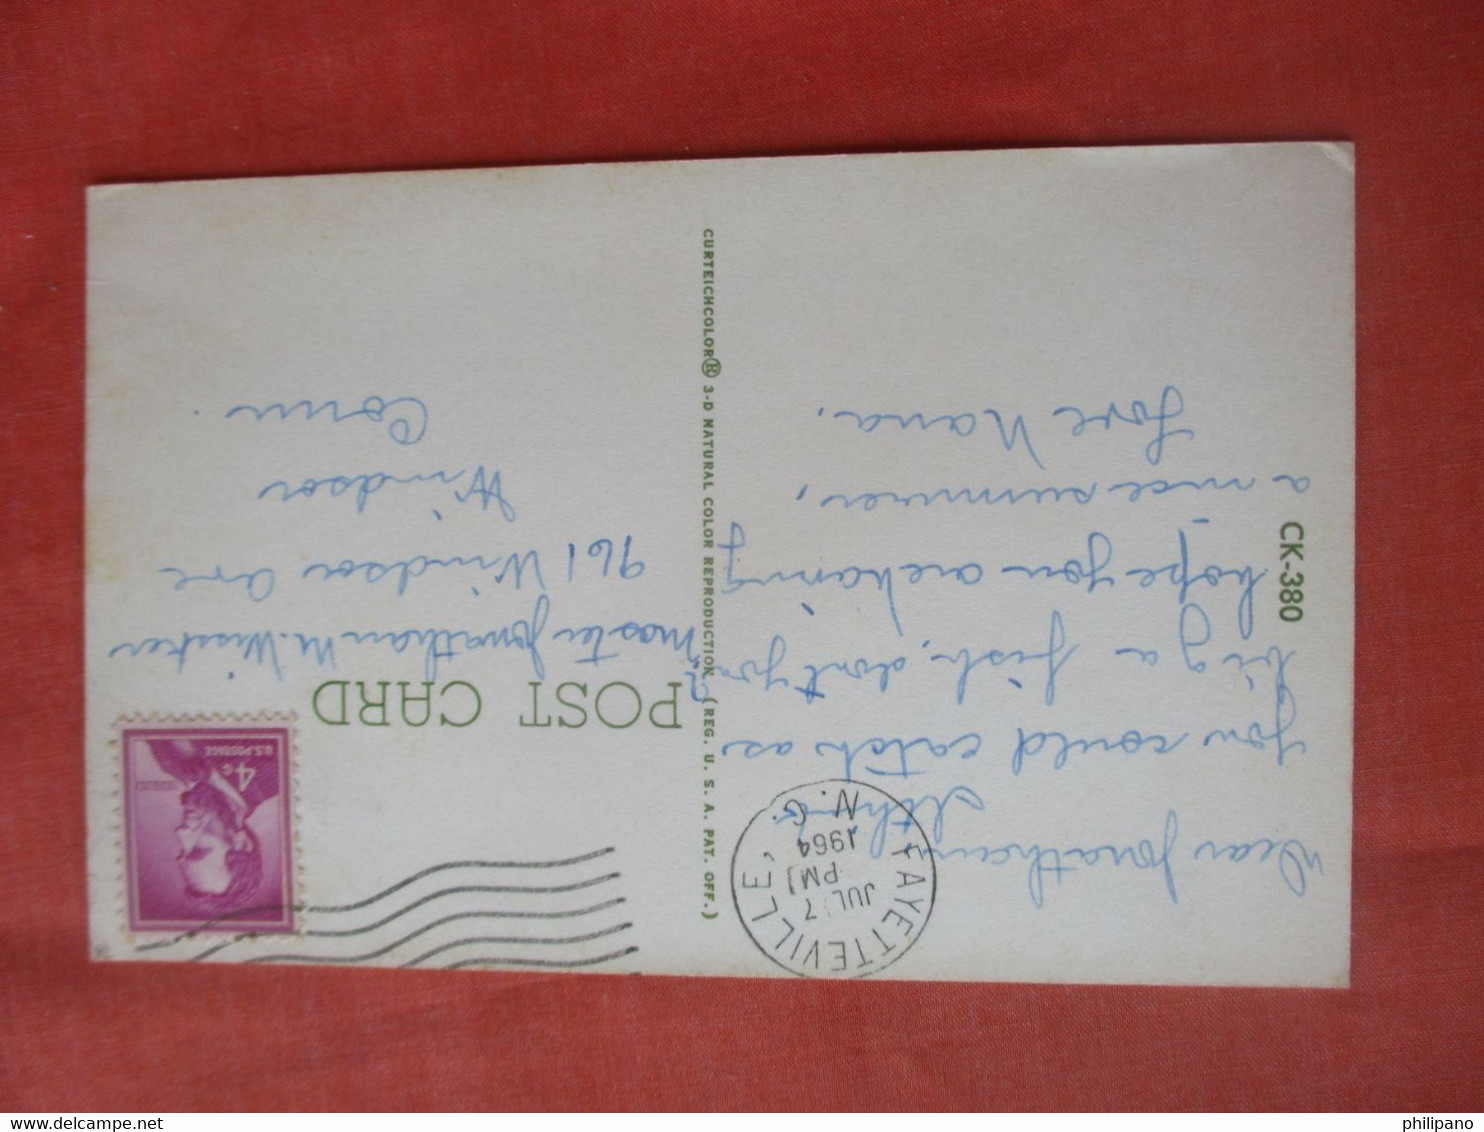 FAYETTEVILLE,
N. C.
JUL 7
PM
1964
Dear Jonathan
you could catch as
big a fish, don't you.
hope you are having
a nice summer,
Love Nana.
CK-380
CURTEICHCOLOR® 3-D NATURAL COLOR REPRODUCTION (REG. U. S. A. PAT. OFF.)
U.S. POSTAGE
4¢
POST CARD
Master Jonathan M.
961 Windsor Ave
Windsor
Conn.
delcampe.net
philipano